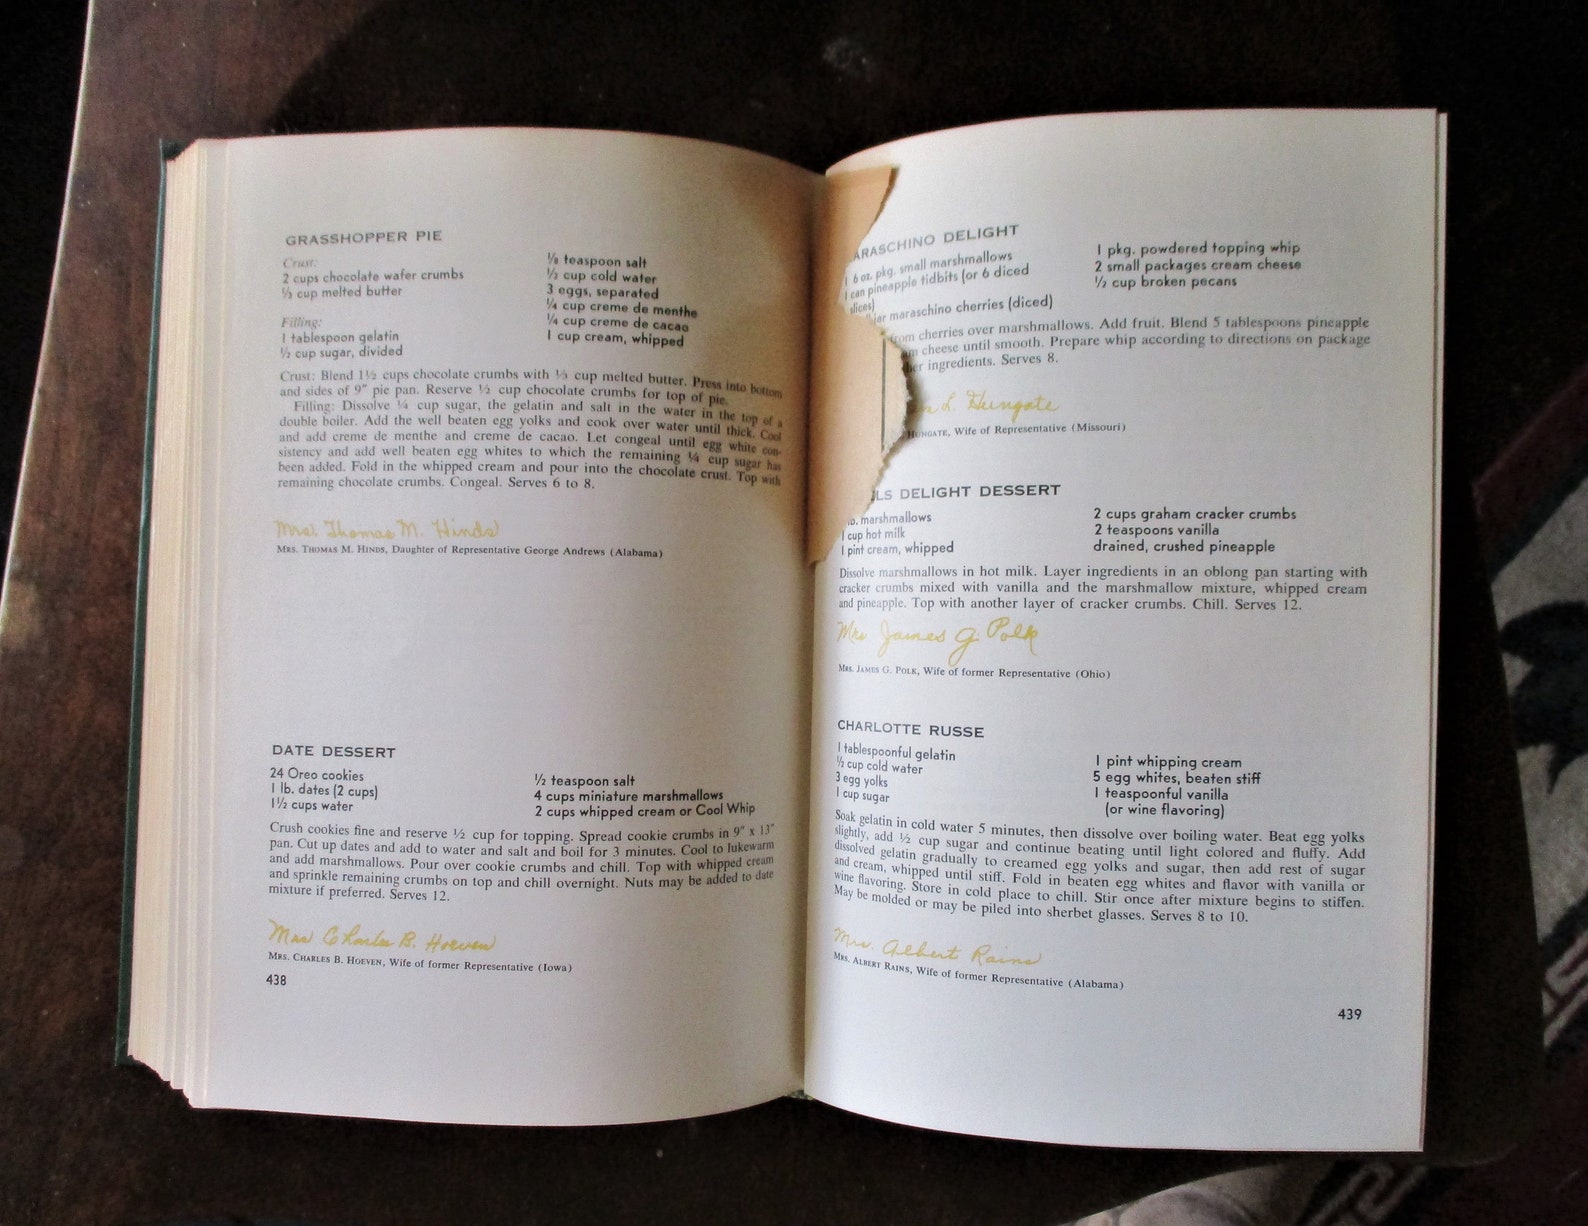 GRASSHOPPER PIE
Crust:
2 cups chocolate wafer crumbs
⅓ cup melted butter
Filling:
1 tablespoon gelatin
½ cup sugar, divided
⅛ teaspoon salt
½ cup cold water
3 eggs, separated
¼ cup creme de menthe
¼ cup creme de cacao
1 cup cream, whipped
Crust: Blend 1½ cups chocolate crumbs with ⅓ cup melted butter. Press into bottom
and sides of 9" pie pan. Reserve ½ cup chocolate crumbs for top of pie.
Filling: Dissolve ¼ cup sugar, the gelatin and salt in the water in the top of a
double boiler. Add the well beaten egg yolks and cook over water until thick. Cool
and add creme de menthe and creme de cacao. Let congeal until egg white con-
sistency and add well beaten egg whites to which the remaining ¼ cup sugar has
been added. Fold in the whipped cream and pour into the chocolate crust. Top with
remaining chocolate crumbs. Congeal. Serves 6 to 8.
Mrs. Thomas M. Hinds
MRS. THOMAS M. HINDS, Daughter of Representative George Andrews (Alabama)
DATE DESSERT
24 Oreo cookies
1 lb. dates (2 cups)
1½ cups water
½ teaspoon salt
4 cups miniature marshmallows
2 cups whipped cream or Cool Whip
Crush cookies fine and reserve ½ cup for topping. Spread cookie crumbs in 9" x 13"
pan. Cut up dates and add to water and salt and boil for 3 minutes. Cool to lukewarm
and add marshmallows. Pour over cookie crumbs and chill. Top with whipped cream
and sprinkle remaining crumbs on top and chill overnight. Nuts may be added to date
mixture if preferred. Serves 12.
Mrs Charles B. Hoeven
MRS. CHARLES B. HOEVEN, Wife of former Representative (Iowa)
438
ARASCHINO DELIGHT
1 6 oz. pkg. small marshmallows
1 can pineapple tidbits (or 6 diced
slices)
jar maraschino cherries (diced)
1 pkg. powdered topping whip
2 small packages cream cheese
½ cup broken pecans
from cherries over marshmallows. Add fruit. Blend 5 tablespoons pineapple
cheese until smooth. Prepare whip according to directions on package
ingredients. Serves 8.
L. Hungate
HUNGATE, Wife of Representative (Missouri)
LS DELIGHT DESSERT
lb. marshmallows
1 cup hot milk
1 pint cream, whipped
2 cups graham cracker crumbs
2 teaspoons vanilla
drained, crushed pineapple
Dissolve marshmallows in hot milk. Layer ingredients in an oblong pan starting with
cracker crumbs mixed with vanilla and the marshmallow mixture, whipped cream
and pineapple. Top with another layer of cracker crumbs. Chill. Serves 12.
Mrs James G. Polk
MRS. JAMES G. POLK, Wife of former Representative (Ohio)
CHARLOTTE RUSSE
1 tablespoonful gelatin
½ cup cold water
3 egg yolks
1 cup sugar
1 pint whipping cream
5 egg whites, beaten stiff
1 teaspoonful vanilla
(or wine flavoring)
Soak gelatin in cold water 5 minutes, then dissolve over boiling water. Beat egg yolks
slightly, add ½ cup sugar and continue beating until light colored and fluffy. Add
dissolved gelatin gradually to creamed egg yolks and sugar, then add rest of sugar
and cream, whipped until stiff. Fold in beaten egg whites and flavor with vanilla or
wine flavoring. Store in cold place to chill. Stir once after mixture begins to stiffen.
May be molded or may be piled into sherbet glasses. Serves 8 to 10.
Mrs. Albert Rains
MRS. ALBERT RAINS, Wife of former Representative (Alabama)
439